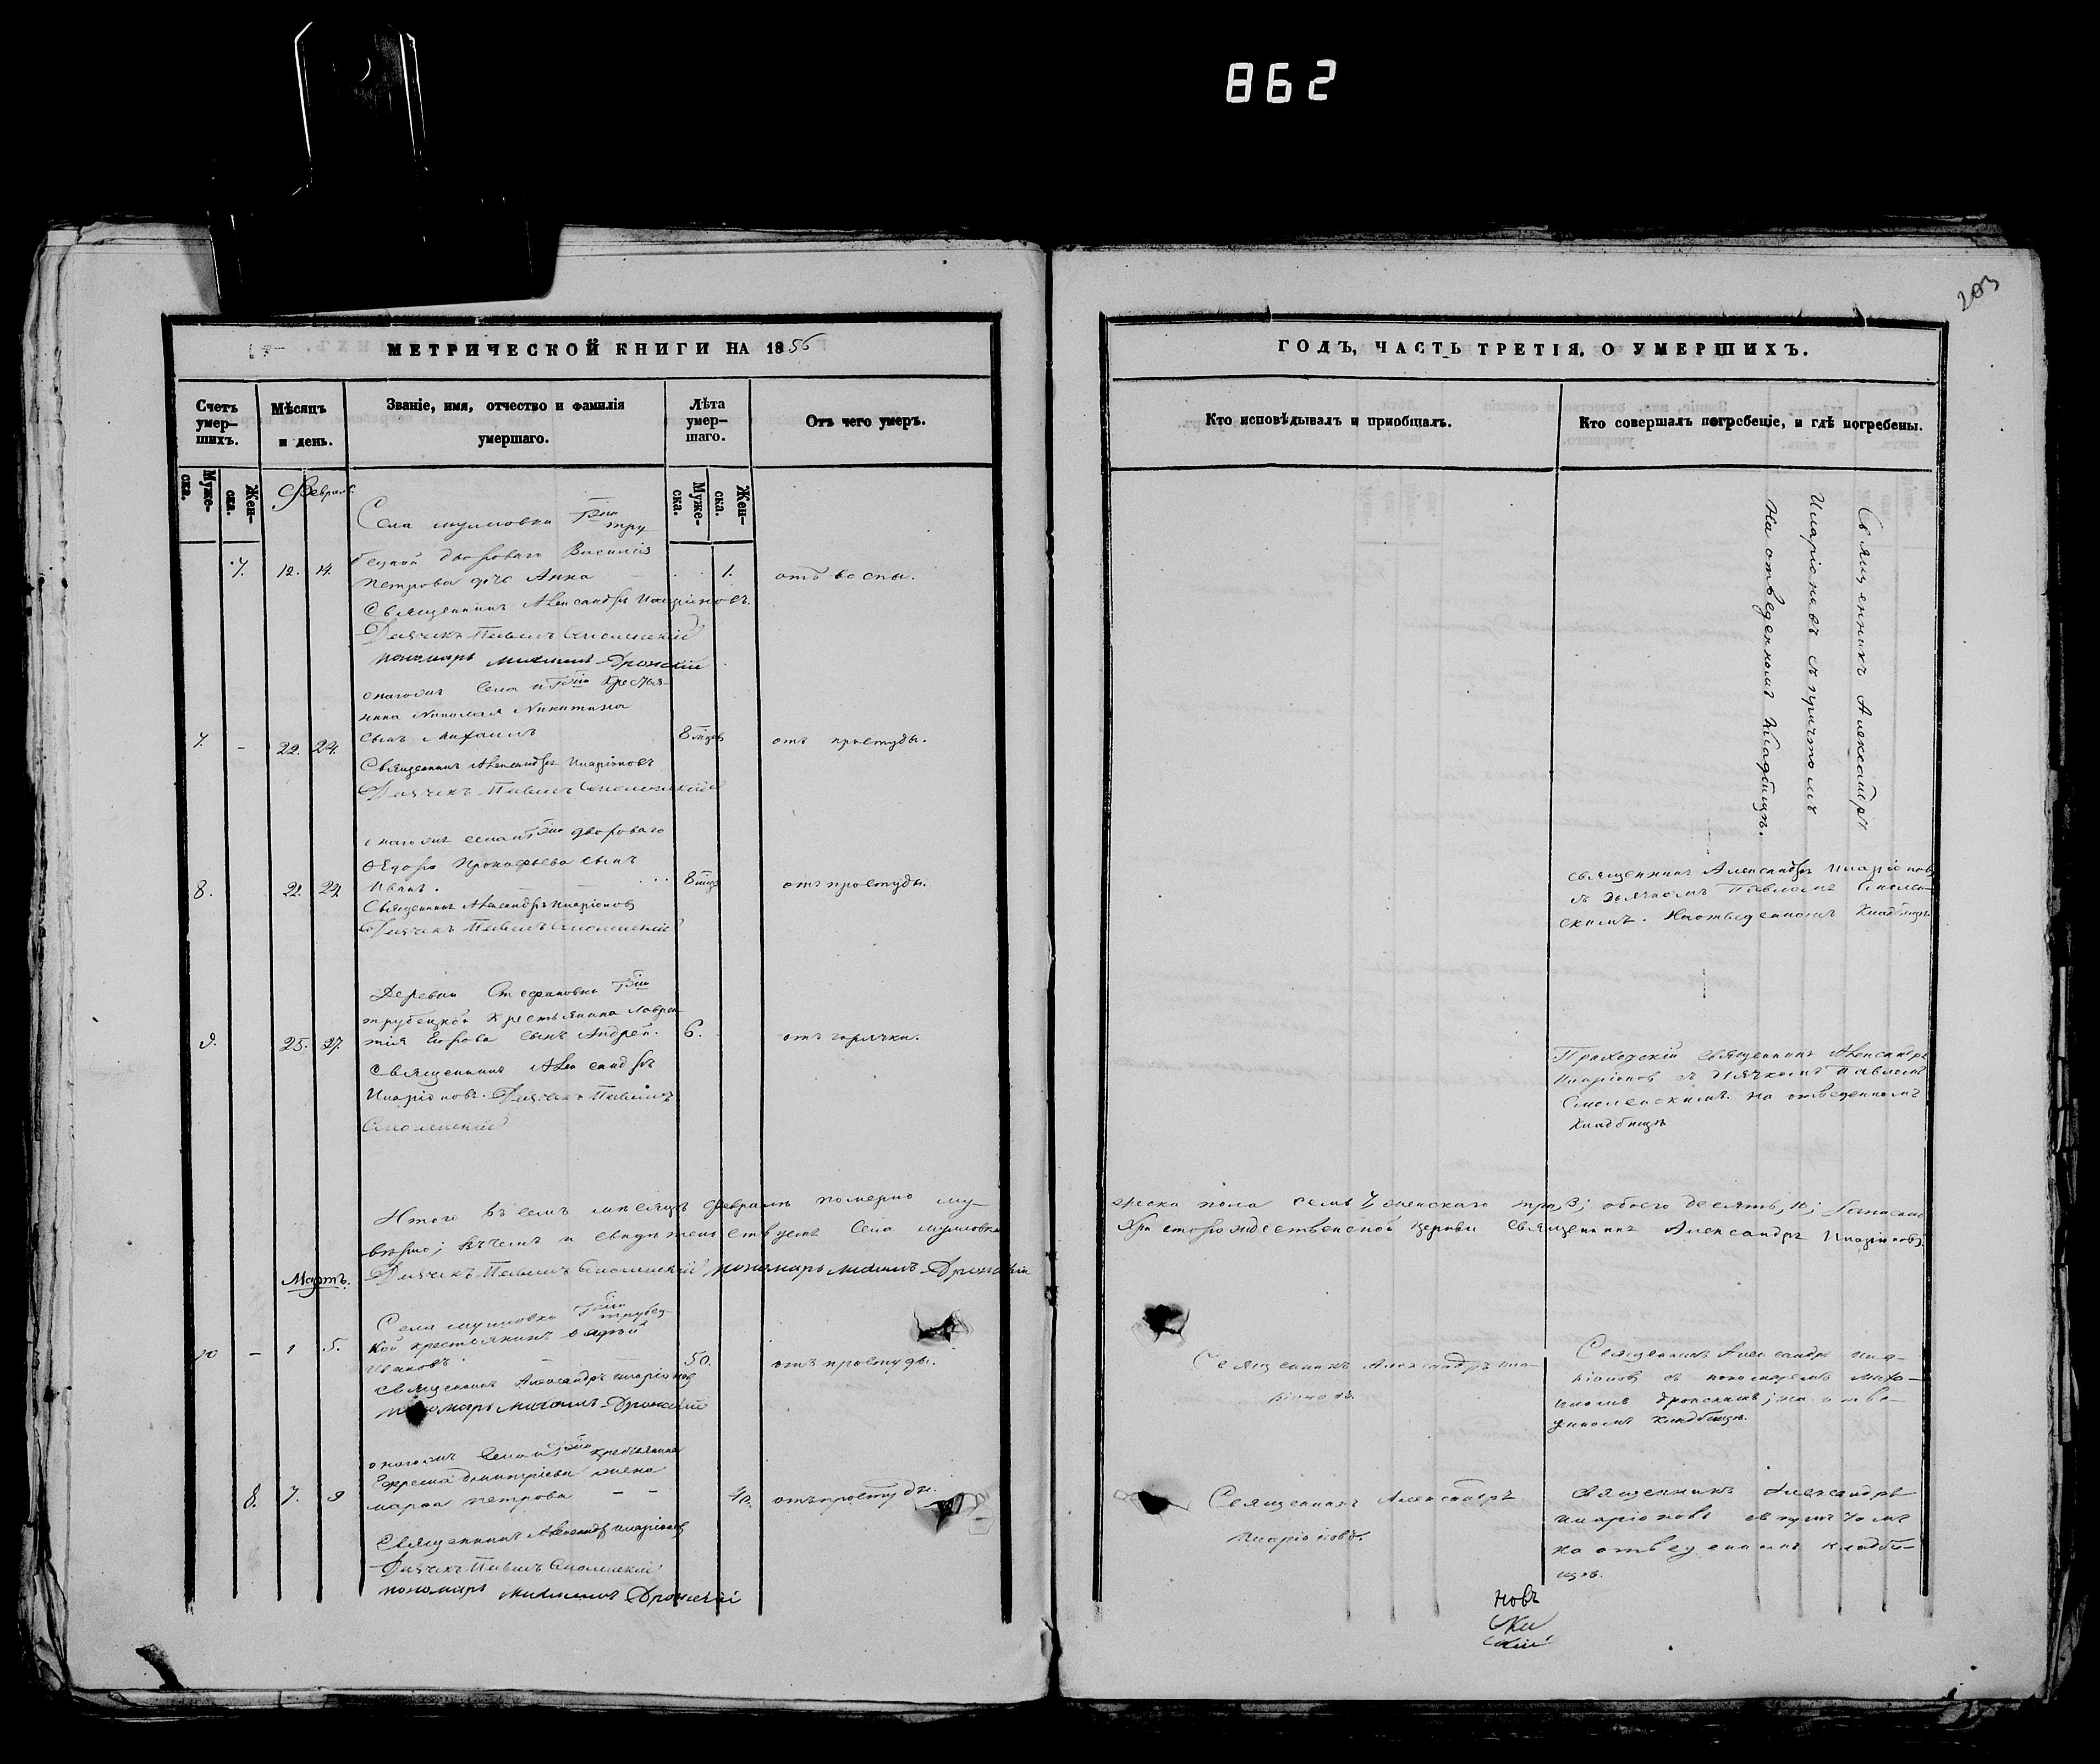 862
203
МЕТРИЧЕСКОЙ КНИГИ НА 1856
Счетъ умер-шихъ.
Мѣсяцъ и день.
Званіе, имя, отчество и фамилія умершаго.
Лѣта умер-шаго.
Отъ чего умеръ.
Муже-ска.
Жен-ска.
Муже-ска.
Жен-ска.
Февраль.
Села
бецкой двороваго Василія
7. 12. 14. Петрова дочь Анна 1. отъ воспы.
Священникъ Александръ Иларіоновъ.
Дьячекъ Павелъ Смоленскій
пономарь Михаилъ Дронскій
онагожъ Села и Гжи крестья-
нина Николая Никитина
7. - 22. 24. сынъ Михаилъ 8 отъ простуды.
Священникъ Александръ Иларіоновъ
Дьячекъ Павелъ Смоленскій
онагожъ села и Гжи двороваго
Ѳедора Прокофьева сынъ
8. 22. 24. Иванъ. 8 отъ простуды.
Священникъ Александръ Иларіоновъ
Дьячекъ Павелъ Смоленскій
Деревни Стефановки Гжи
трубецкой крестьянина Лаврен
9. 25. 27. тія Егорова сынъ Андрей. 6. отъ горячки.
Священникъ Александръ
Иларіоновъ. Дьячекъ Павелъ
Смоленскій
Итого въ семъ мѣсяцѣ февралѣ померло му-
вѣрно; въ чемъ и свидѣтельствуемъ Села
Дьячекъ Павелъ Смоленскій пономарь Михаилъ Дронскій
Мартъ.
Села Гжи трубец
кой крестьянинъ
10 - 1 5. Ивановъ 50. отъ простуды.
Священникъ Александръ Иларіоновъ
пономарь Михаилъ Дронскій
онагожъ Села и Гжи крестьянина
Ефрема Димитріева жена
8. 7. 9 Марфа Петрова - - 40. отъ простуды.
Священникъ Александръ Иларіоновъ
Дьячекъ Павелъ Смоленскій
пономарь Михаилъ Дронскій
ГОДЪ, ЧАСТЬ ТРЕТІЯ, О УМЕРШИХЪ.
Кто исповѣдывалъ и пріобщалъ.
Кто совершалъ погребеніе, и гдѣ погребены.
Священникъ Александръ
Иларіоновъ съ причтомъ
На отведенномъ кладбищѣ.
священникъ Александръ Иларіоновъ
съ Дьячкомъ Павломъ Смолен-
скимъ. На отведенномъ кладбищѣ
Приходскій священникъ Александръ
Иларіоновъ съ Дьячкомъ Павломъ
Смоленскимъ. на отведенномъ
кладбищѣ
жеска пола семь 7 женскаго три 3; обоего десять, 10; Записано
Христорождественской Церкви Священникъ Александръ Иларіоновъ.
Священникъ Александръ Ила-
ріоновъ.
Священникъ Александръ Ила-
ріоновъ съ пономаремъ Миха-
иломъ Дронскимъ; на отве-
денномъ кладбищѣ.
Священникъ Александръ
Иларіоновъ.
Священникъ Александръ
Иларіоновъ съ причтомъ
на отведенномъ кладби-
щѣ.
новъ
скій